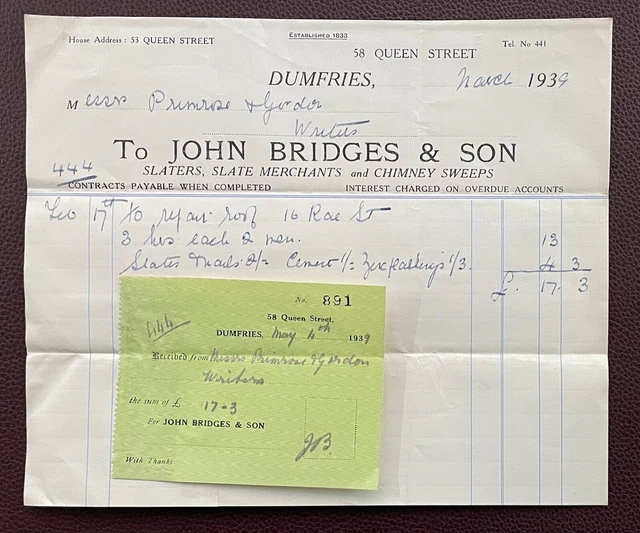 House Address : 53 QUEEN STREET
ESTABLISHED 1833
Tel. No 441
58 QUEEN STREET
DUMFRIES, March 1939
Messrs Primrose & Gordon
Writers
To JOHN BRIDGES & SON
444
SLATERS, SLATE MERCHANTS and CHIMNEY SWEEPS
CONTRACTS PAYABLE WHEN COMPLETED INTEREST CHARGED ON OVERDUE ACCOUNTS
Feb 17th To repair roof 16 Rae St
3 hrs each 2 men. 13
Slates Nails 2/= Cement 1/= Zinc flashings 1/3. 4 3
£. 17 3
No. 891
58 Queen Street,
444
DUMFRIES, May 4th 1939
Received from Messrs Primrose & Gordon
Writers
the sum of £ 17-3
For JOHN BRIDGES & SON
JB.
With Thanks